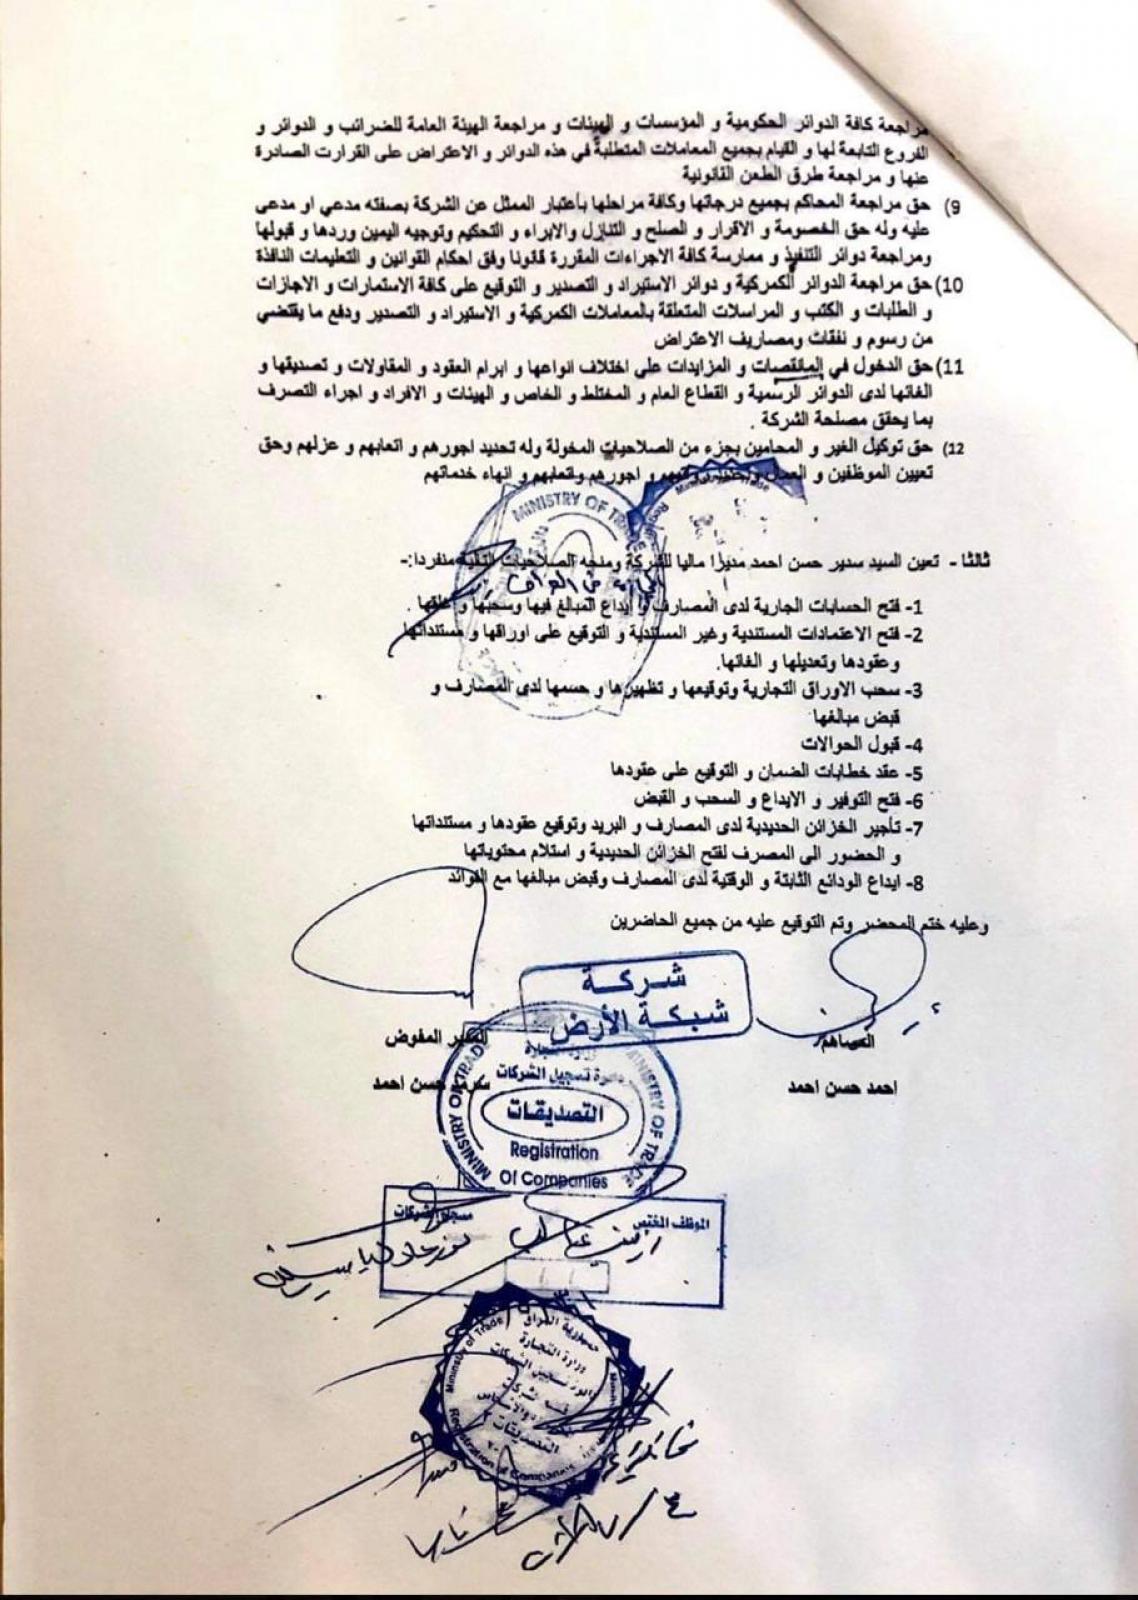 مراجعة كافة الدوائر الحكومية و المؤسسات و الهيئات و مراجعة الهيئة العامة للضرائب و الدوائر و
الفروع التابعة لها و القيام بجميع المعاملات المتطلبة في هذه الدوائر و الاعتراض على القرارت الصادرة
عنها و مراجعة طرق الطعن القانونية
9) حق مراجعة المحاكم بجميع درجاتها وكافة مراحلها بأعتبار الممثل عن الشركة بصفته مدعي او مدعى
عليه وله حق الخصومة و الاقرار و الصلح و التنازل والابراء و التحكيم وتوجيه اليمين وردها و قبولها
ومراجعة دوائر التنفيذ و ممارسة كافة الاجراءات المقررة قانونا وفق احكام القوانين و التعليمات النافذة
10) حق مراجعة الدوائر الكمركية و دوائر الاستيراد و التصدير و التوقيع على كافة الاستمارات و الاجازات
و الطلبات و الكتب و المراسلات المتعلقة بالمعاملات الكمركية و الاستيراد و التصدير ودفع ما يقتضي
من رسوم و نفقات ومصاريف الاعتراض
11) حق الدخول في المانقصات و المزايدات على اختلاف انواعها و ابرام العقود و المقاولات و تصديقها و
الغائها لدى الدوائر الرسمية و القطاع العام و المختلط و الخاص و الهيئات و الافراد و اجراء التصرف
بما يحقق مصلحة الشركة .
12) حق توكيل الغير و المحامين بجزء من الصلاحيات المخولة وله تحديد اجورهم و اتعابهم و عزلهم وحق
تعيين الموظفين و العمال و اجورهم واتعابهم و انهاء خدماتهم
MINISTRY OF TRADE
ثالثا - تعين السيد سدير حسن احمد مديرا ماليا للشركة ومنحه الصلاحيات التالية منفردا:-
1- فتح الحسابات الجارية لدى المصارف و ايداع المبالغ فيها وسحبها و غلقها .
2- فتح الاعتمادات المستندية وغير المستندية و التوقيع على اوراقها و مستنداتها
وعقودها وتعديلها و الغائها.
3- سحب الاوراق التجارية وتوقيعها و تظهيرها و حسمها لدى المصارف و
قبض مبالغها
4- قبول الحوالات
5- عقد خطابات الضمان و التوقيع على عقودها
6- فتح التوفير و الايداع و السحب و القبض
7- تأجير الخزائن الحديدية لدى المصارف و البريد وتوقيع عقودها و مستنداتها
و الحضور الى المصرف لفتح الخزائن الحديدية و استلام محتوياتها
8- ايداع الودائع الثابتة و الوقتية لدى المصارف وقبض مبالغها مع الفوائد
وعليه ختم المحضر وتم التوقيع عليه من جميع الحاضرين
شركة
شبكة الأرض
المساهم
المدير المفوض
احمد حسن احمد
حسن احمد
دائرة تسجيل الشركات
التصديقات
Registration
Of Companies
MINISTRY OF TRADE
MINISTRY OF TRADE
الموظف المختص
مسجل الشركات
جمهورية العراق
وزارة التجارة
التصديقات
Registration of Companies